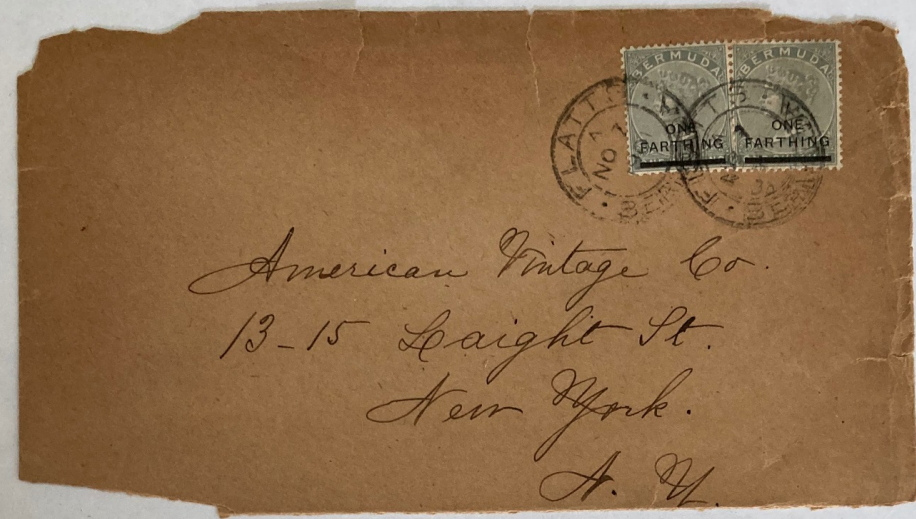 BERMUDA BERMUDA
ONE FARTHING
ONE FARTHING
FLATTS
NO
American Vintage Co.
13-15 Laight St.
New York.
N. Y.